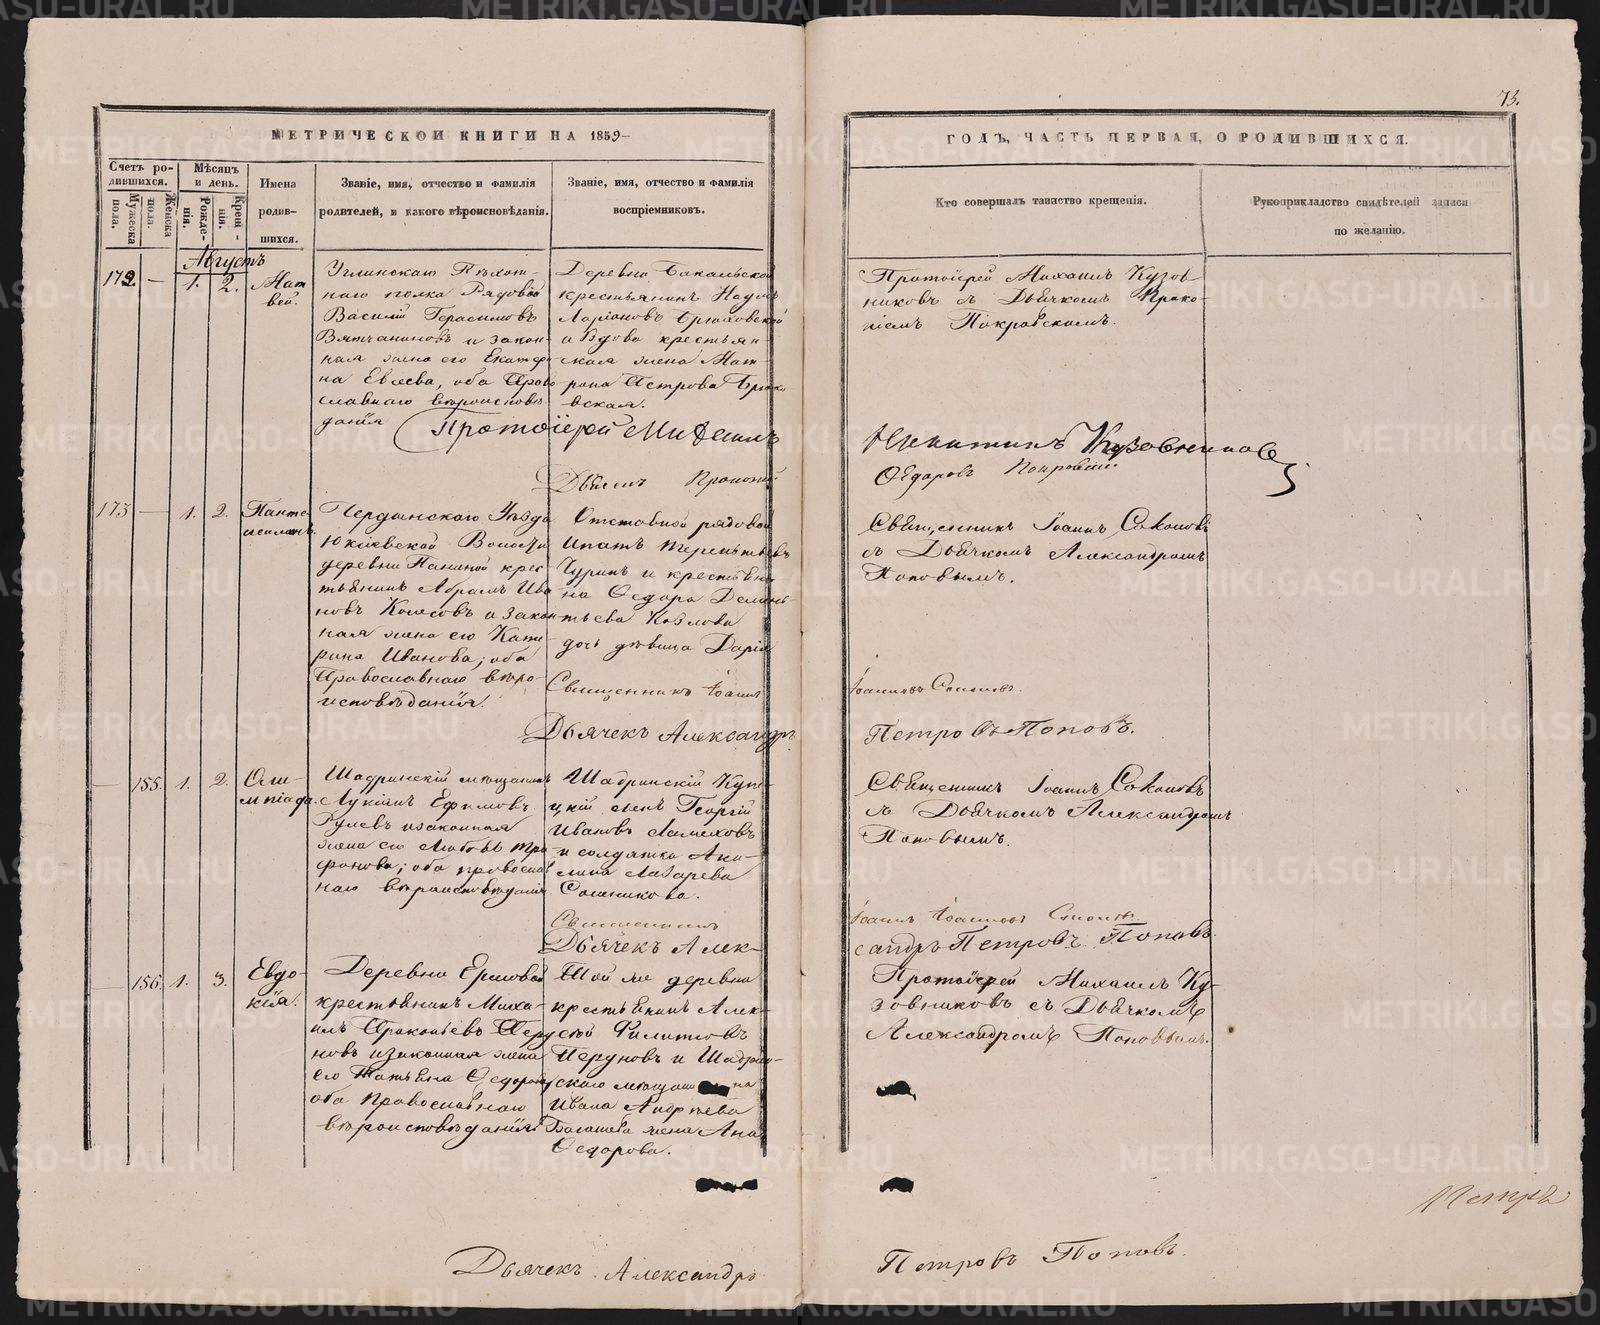 73.
МЕТРИЧЕСКОЙ КНИГИ НА 1859
ГОДЪ, ЧАСТЬ ПЕРВАЯ, О РОДИВШИХСЯ.
Счетъ ро-
дившихся.
Мужеска
пола.
Женска
пола.
Мѣсяцъ
и день.
Рожде-
нія.
Креще-
нія.
Имена
родив-
шихся.
Званіе, имя, отчество и фамилія
родителей, и какого вѣроисповѣданія.
Званіе, имя, отчество и фамилія
воспріемниковъ.
Кто совершалъ таинство крещенія.
Рукоприкладство свидѣтелей записи
по желанію.
Августъ
172. — 1. 2.
Мат
вей.
Углицкаго Пѣхот-
наго полка Рядовой
Василій Герасимовъ
Вятчаниновъ и закон-
ная жена его Екатери
на Евсева, оба Право
славнаго вѣроисповѣ
данія
Деревни Бакальской
крестьянинъ Наумъ
Ларіоновъ Брюховской
и Вдова крестьян-
ская жена Мат-
рона Петрова Брюхо
вская.
Протоіерей Михаилъ Кузов
никовъ съ Дьячкомъ Проко-
піемъ Покровскимъ.
Протоіерей Михаилъ
Никитинъ Кузовниковъ
Дьячекъ Прокопій
Ѳедоровъ Покровскій
173 — 1. 2.
Панте
леимонъ.
Чердынскаго Уѣзда
Юксѣевской Волости
деревни Паниной крес
тьянинъ Абрамъ Ива
новъ Колесовъ и закон
ная жена его Кате
рина Иванова; оба
Православнаго вѣро-
исповѣданія.
Отставной рядовой
Ипатъ Терентьевъ
Чуринъ и крестьяни
на Ѳедора Делень-
тьева Козлова
дочь дѣвица Дарія
Священникъ Іоаннъ Соколовъ
съ Дьячкомъ Александромъ
Поповымъ.
Священникъ Іоаннъ
Іоанновъ Соколовъ.
Дьячекъ Александръ
Петровъ Поповъ.
— 155. 1. 2.
Оли-
мпіада.
Шадринскій мѣщанинъ
Лукіянъ Ефимовъ
Рулевъ и законная
жена его Любовь Тро
фимова; оба православ
наго вѣроисповѣданія
Шадринскій Купе-
цкій сынъ Георгій
Ивановъ
и солдатка Ани-
лина Лазарева
Сошникова.
Священникъ Іоаннъ Соколовъ
съ Дьячкомъ Александромъ
Поповымъ.
Священникъ
Іоаннъ Іоанновъ Соколовъ
Дьячекъ Алек-
сандръ Петровъ Поповъ.
— 156. 1. 3.
Евдо-
кія.
Деревни Ершовой
крестьянинъ Миха-
илъ Прокопьевъ Перу
новъ и законная жена
его Татьяна Ѳедорова
оба Православнаго
вѣроисповѣданія
Той же деревни
крестьянинъ Алек-
сѣй Филиповъ
Перуновъ и Шадрин-
скаго мѣщанина
Ивана Андреева
жена Анна
Ѳедорова.
Протоіерей Михаилъ Ку-
зовниковъ съ Дьячкомъ
Александромъ Поповымъ.
Петръ
Дьячекъ Александръ
Петровъ Поповъ.
METRIKI.GASO-URAL.RU